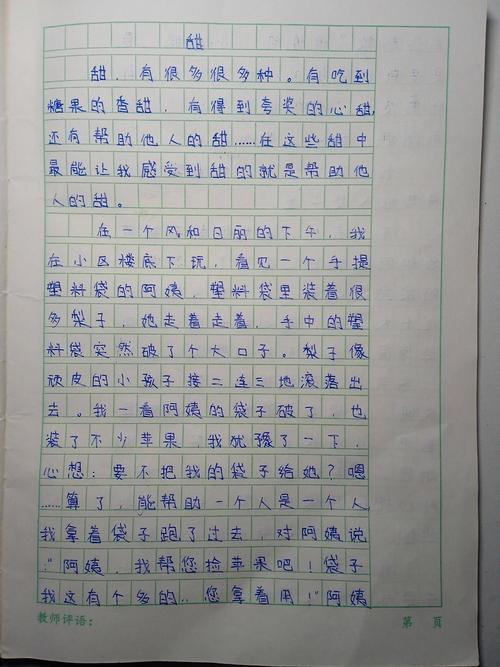 甜
甜，有很多很多种。有吃到
糖果的香甜，有得到夸奖的心甜，
还有帮助他人的甜……在这些甜中
最能让我感受到甜的就是帮助他
人的甜。
在一个风和日丽的下午，我
在小区楼底下玩，看见一个手提
塑料袋的阿姨，塑料袋里装着很
多梨子，她走着走着，手中的塑
料袋突然破了个大口子。梨子像
顽皮的小孩子接二连三地滚落出
去。我一看阿姨的袋子破了，也
装了不少苹果，我犹豫了一下，
心想：要不把我的袋子给她？嗯
……算了，能帮助一个人是一个人
我拿着袋子跑了过去，对阿姨说
：“阿姨，我帮您捡苹果吧！袋子
我这有个多的…您拿着用！”阿姨
教师评语：
第 页